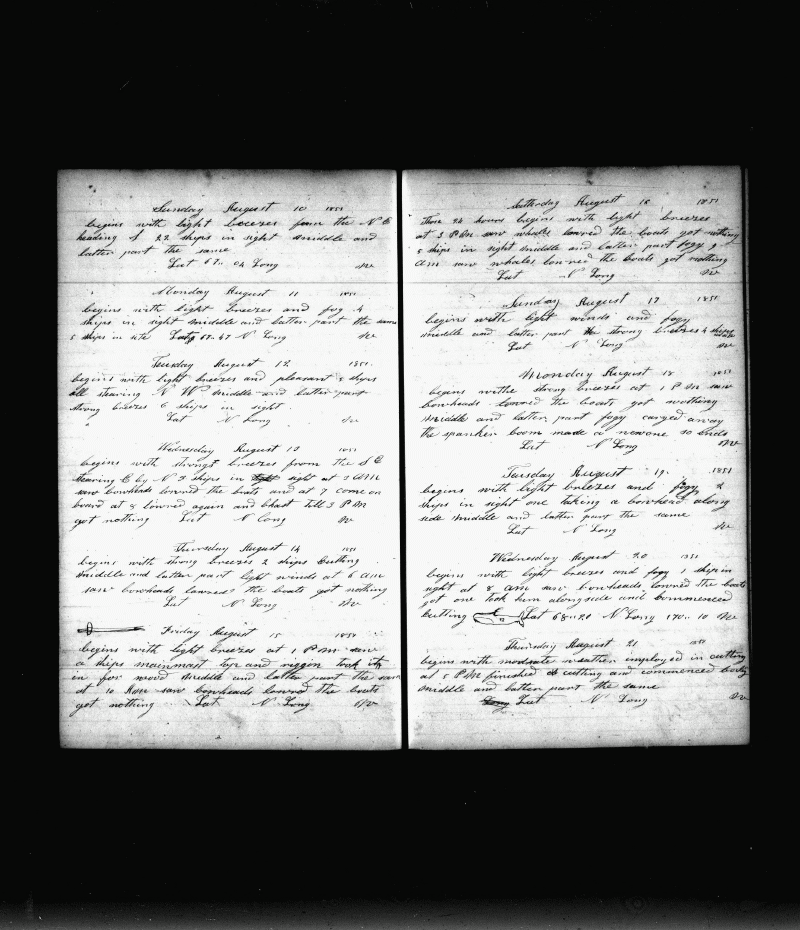 Sunday August 10 1851
begins with light breezes from the N E
heading S 22 ships in sight middle and
latter part the same
Lat 67.. 04 Long W
Monday August 11 1851
begins with light breezes and fog 4
ships in sight middle and latter part the same
5 ships in site Lat 67.. 47 N Long W
Tuesday August 12 1851
begins with light breezes and pleasant 8 ships
all stearing N W middle and latter part
strong breezes 6 ships in sight
Lat N Long W
Wednesday August 13 1851
begins with strongt breezes froom the S E
stearing E by N 3 ships in sight at 3 AM
saw bowheads lowred the boats and at 7 come on
board at 8 lowred again and chast till 3 PM
got nothing Lat N Long W
Thursday August 14 1851
begins with strong breezes 2 ships cutting
middle and latter part light winds at 6 am
saw bowheads lowred the boats got nothing
Lat N Long W
Friday August 15 1851
begins with light breezes at 1 PM saw
a ships mainmast and riggin took it
in for wood middle and latter part the same
at 10 AM saw bowheads lowred the boats
got nothing Lat N Long W
Satterday August 16 1851
Those 24 hours begins with light breezes
at 3 PM saw whales lowred the boats got nothing
5 ships in sight middle and latter part fogy 9
am saw whales lowred the boats got nothing
Lat N Long W
Sunday August 17 1851
begins with light winds and fogy
middle and latter part strong breezes 4 ships
Lat N Long W
Monday August 18 1851
begins withe strong breezes at 1 PM saw
bowheads lowred the boats got nothing
middle and latter part fogy caryed away
the spanker boom made a newone so ends
Lat N Long W
Tuesday August 19. 1851
begins with light breezes and fogy 2
ships in sight one taking a bowhead along
side middle and latter part the same
Lat N Long W
Wednesday August 20 1851
begins with light breezes and fogy 1 ship in
sight at 8 am saw bowheads lowred the boats
got one took him alongside and commenced
cutting Lat 68..20 N Long 170.. 10 W
Thursday August 21 1851
begins with modrate weather employed in cutting
at 5 PM finished cutting and commenced boiling
middle and latter part the same
Lat N Long W